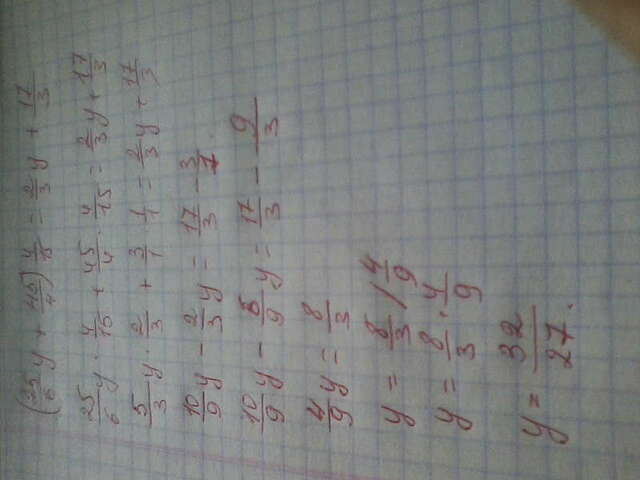 (25/6 y + 45/4) 4/15 = 2/3 y + 17/3
25/6 y · 4/15 + 45/4 · 4/15 = 2/3 y + 17/3
5/3 y · 2/3 + 3/1 · 1/1 = 2/3 y + 17/3
10/9 y - 2/3 y = 17/3 - 3/1
10/9 y - 6/9 y = 17/3 - 9/3
4/9 y = 8/3
y = 8/3 / 4/9
y = 8/3 · 4/9
y = 32/27.